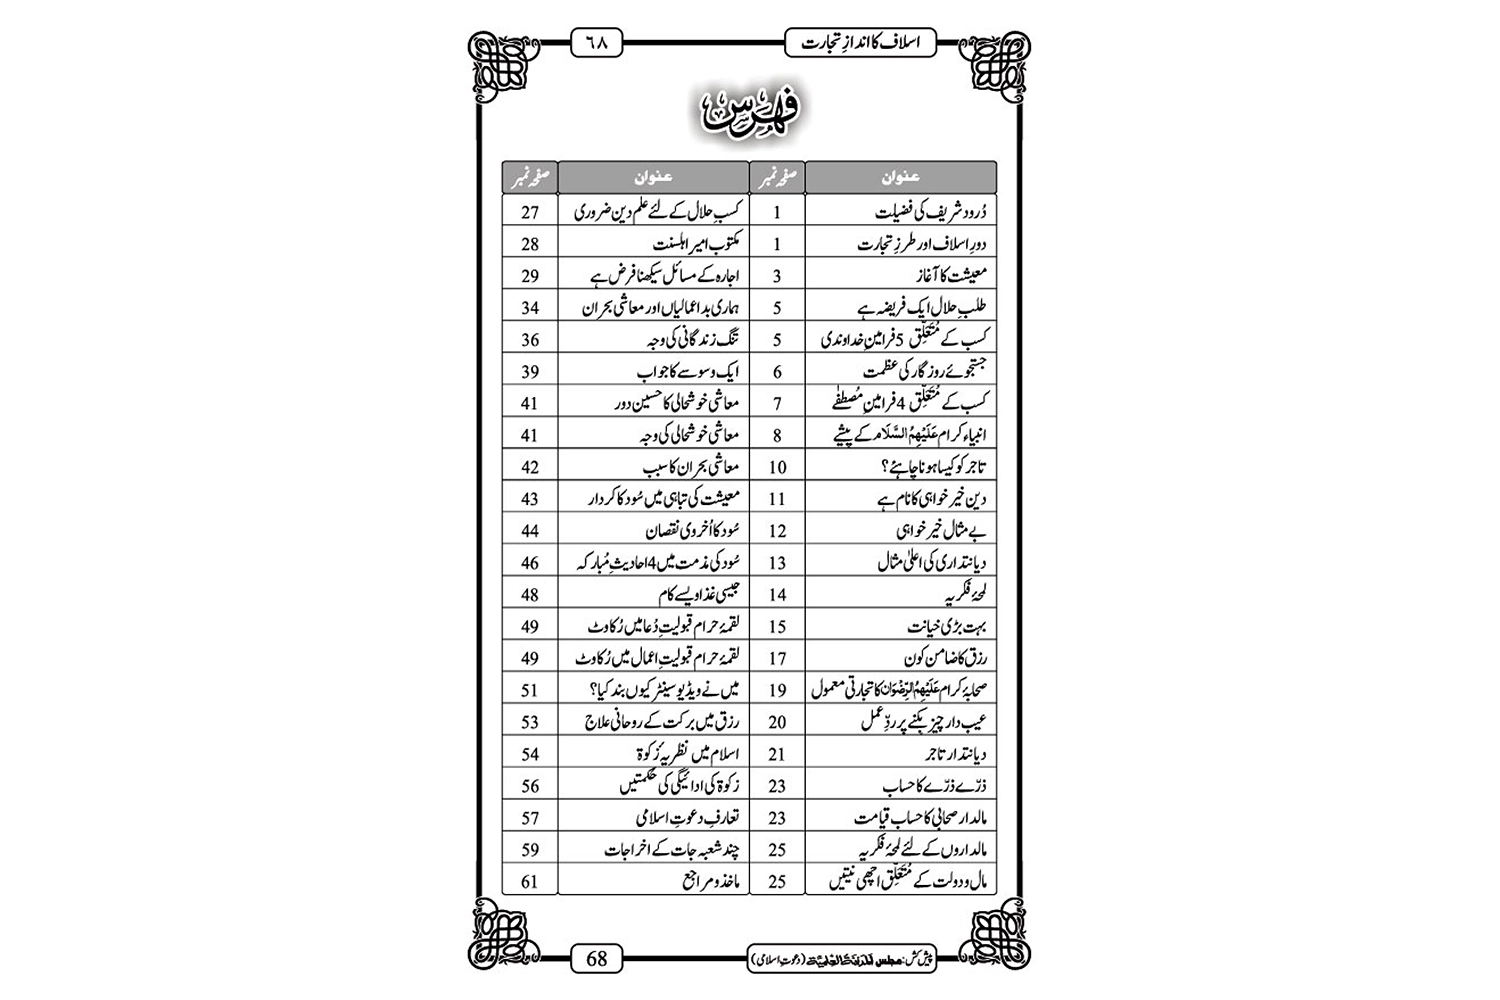 اسلاف کا اندازِ تجارت ٦٨
فہرس
عنوان صفحہ نمبر عنوان صفحہ نمبر
دُرود شریف کی فضیلت 1 کسبِ حلال کے لئے علم دین ضروری 27
دورِ اسلاف اور طرزِ تجارت 1 مکتوب امیر اہلسنت 28
معیشت کا آغاز 3 اجارہ کے مسائل سیکھنا فرض ہے 29
طلبِ حلال ایک فریضہ ہے 5 ہماری بداعمالیاں اور معاشی بحران 34
کسب کے مُتَعَلِّق 5 فرامینِ خداوندی 5 تنگ زندگانی کی وجہ 36
جستجوئے روزگار کی عظمت 6 ایک وسوسے کا جواب 39
کسب کے مُتَعَلِّق 4 فرامینِ مُصطفٰے 7 معاشی خوشحالی کا حسین دور 41
انبیاء کرام عَلَیْہِمُ السَّلَام کے پیشے 8 معاشی خوشحالی کی وجہ 41
تاجر کو کیسا ہونا چاہئے؟ 10 معاشی بحران کا سبب 42
دین خیر خواہی کا نام ہے 11 معیشت کی تباہی میں سُود کا کردار 43
بے مثال خیر خواہی 12 سُود کا اُخروی نقصان 44
دیانتداری کی اعلیٰ مثال 13 سُود کی مذمت میں 4 احادیثِ مُبارکہ 46
لمحۂ فکریہ 14 جیسی غذا ویسے کام 48
بہت بڑی خیانت 15 لقمۂ حرام قبولیتِ دُعا میں رُکاوٹ 49
رزق کا ضامن کون 17 لقمۂ حرام قبولیتِ اعمال میں رُکاوٹ 49
صحابۂ کرام عَلَیْہِمُ الرِّضْوَان کا تجارتی معمول 19 میں نے ویڈیو سینٹر کیوں بند کیا؟ 51
عیب دار چیز بکنے پر ردِّ عمل 20 رزق میں برکت کے روحانی علاج 53
دیانتدار تاجر 21 اسلام میں نظریہ زکوٰۃ 54
ذرّے ذرّے کا حساب 23 زکوٰۃ کی ادائیگی کی حکمتیں 56
مالدار صحابی کا حساب قیامت 23 تعارفِ دعوتِ اسلامی 57
مالداروں کے لئے لمحۂ فکریہ 25 چند شعبہ جات کے اخراجات 59
مال و دولت کے مُتَعَلِّق اچھی نیتیں 25 ماخذ و مراجع 61
پیش کش: مجلس اَلْمَدِیْنَۃُ الْعِلْمِیَّۃ (دعوتِ اسلامی) 68